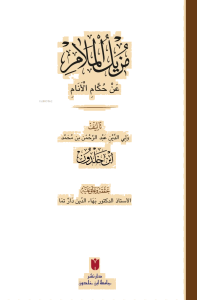 مزيل الملام
عن حكام الأنام
تأليف
ولي الدين عبد الرحمن بن محمد
ابن خلدون
الأستاذ الدكتور بهاء الدين